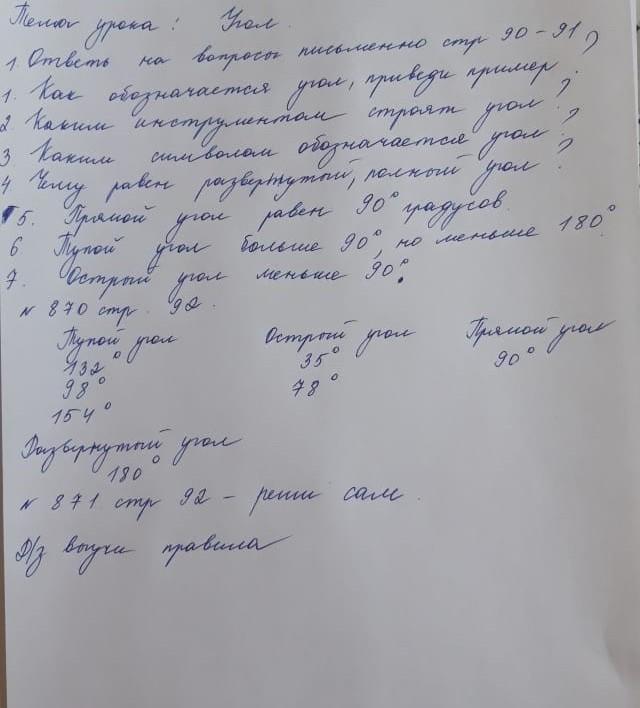 Тема урока: Угол.
1. Ответь на вопросы письменно стр 90-91
1. Как обозначается угол, приведи пример?
2. Каким инструментом строят угол?
3. Каким символом обозначается угол?
4. Чему равен развернутый, полный угол?
5. Прямой угол равен 90° градусов.
6 Тупой угол больше 90°, но меньше 180°.
7. Острый угол меньше 90°.
№ 870 стр. 92.
Тупой угол Острый угол Прямой угол
132° 35° 90°
98° 78°
154°
Развернутый угол
180°
№ 871 стр 92 - реши сам.
Д/з выучи правила